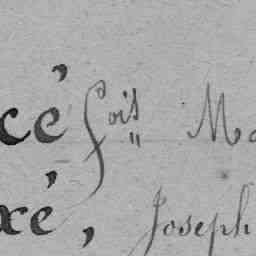 cé fois Ma
xé, Joseph